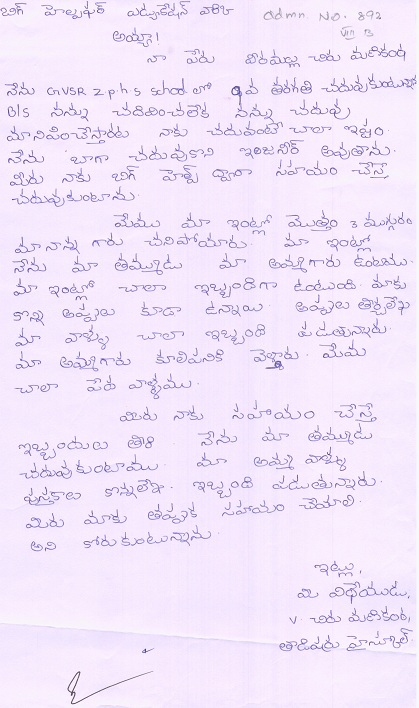 బిగ్ హెల్ప్ ఫర్ ఎడ్యుకేషన్ వారికి
admn No. 892
VIII B
అయ్యా!
నా పేరు వీరమల్ల చిరు మణికంఠ
నేను GNVSR Z.p.h.s school లో 9వ తరగతి చదువుకుంటున్న
నన్ను చదివించలేక నన్ను చదువు
మానిపించేస్తారట నాకు చదువంటే చాలా ఇష్టం
నేను బాగా చదువుకొని ఇంజనీర్ అవుతాను.
మీరు నాకు బిగ్ హెల్ప్ ద్వారా సహాయం చేస్తే
చదువుకుంటాను.
మేము మా ఇంట్లో మొత్తం 3 ముగ్గురం
మా నాన్న గారు చనిపోయారు. మా ఇంట్లో
నేను మా తమ్ముడు మా అమ్మగారు ఉంటాము.
మా ఇంట్లో చాలా ఇబ్బందిగా ఉంటుంది. మాకు
కొన్ని అప్పులు కూడా ఉన్నాయి. అప్పులు తీర్చలేక
మా వాళ్ళు చాలా ఇబ్బంది పడుతున్నారు.
మా అమ్మగారు కూలిపనికి వెళ్తారు. మేము
చాలా పేద వాళ్ళము.
మీరు నాకు సహాయం చేస్తే
ఇబ్బందులు తీరి నేను మా తమ్ముడు
చదువుకుంటాము. మా అమ్మ వాళ్ళు
పుస్తకాలు కొన్నలేక ఇబ్బంది పడుతున్నారు.
మీరు మాకు తప్పక సహాయం చేయాలి.
అని కోరుకుంటున్నాను.
ఇట్లు,
మీ విధేయుడు,
V. చిరు మణికంఠ,
తాడిపర్రు హైస్కూల్.